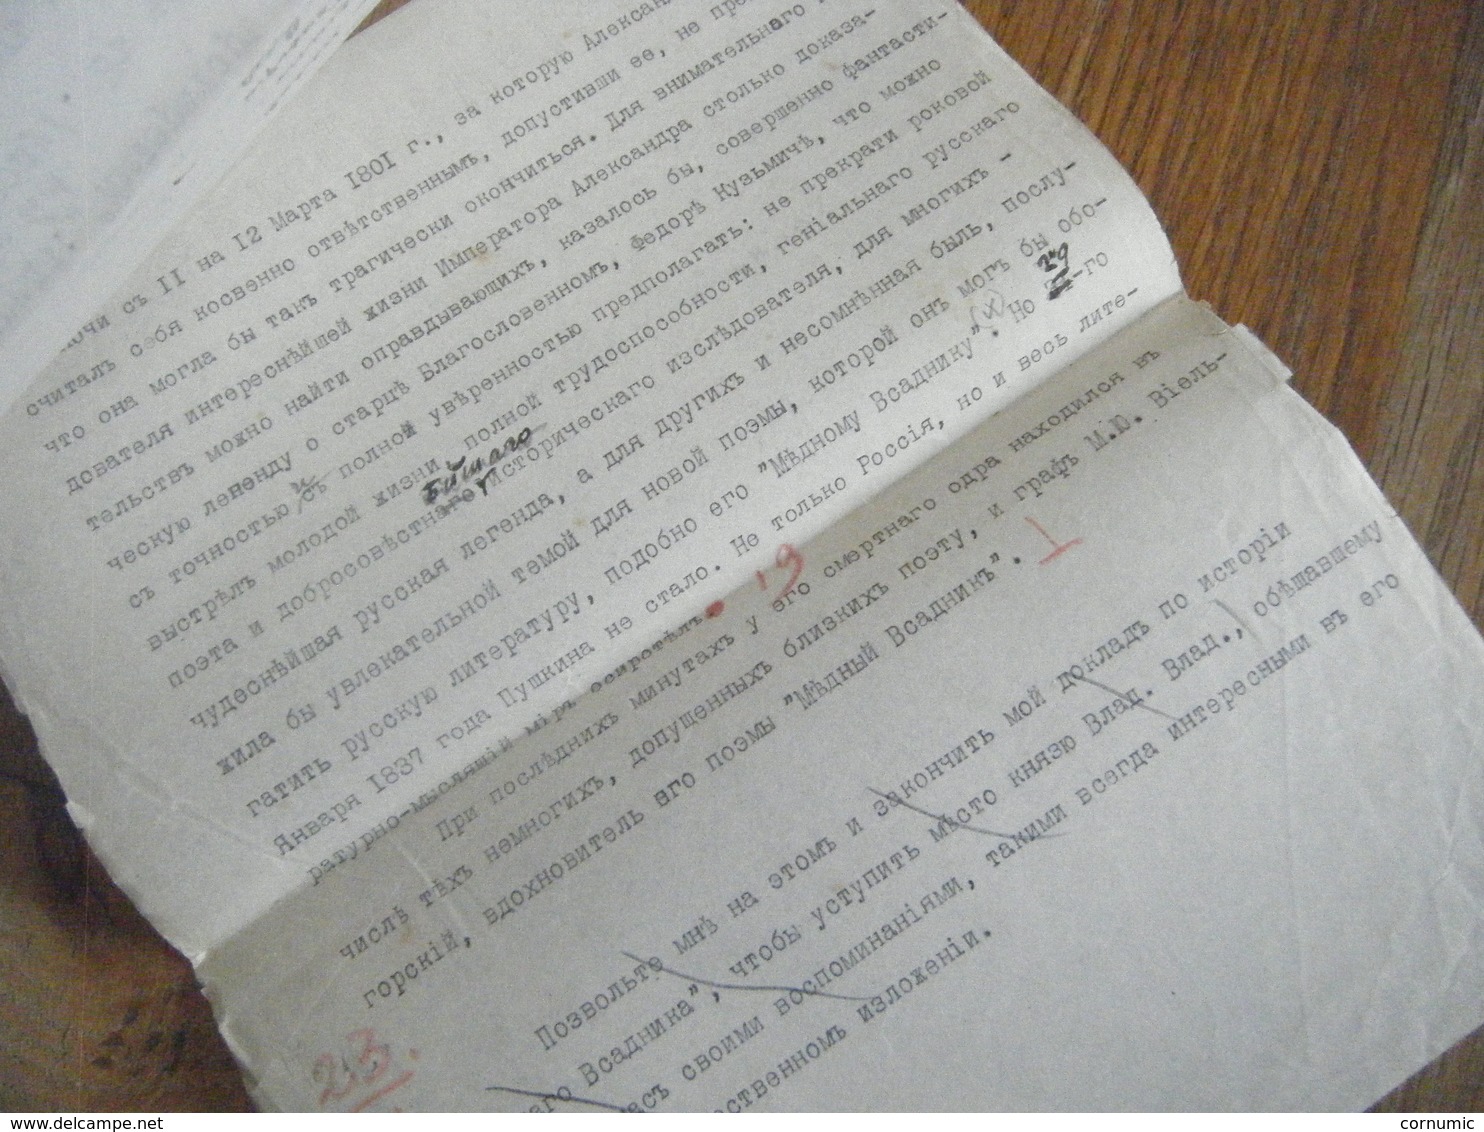 ночи съ II на I2 Марта I80I г., за которую Александ
считалъ себя косвенно отвѣтственнымъ, допустивши ее, не пре
что она могла бы такъ трагически окончиться. Для внимательнаго
дователя интереснѣйшей жизни Императора Александра столько доказа-
тельствъ можно найти оправдывающихъ, казалось бы, совершенно фантасти-
ческую легенду о старцѣ Благословенномъ, Федорѣ Кузьмичѣ, что можно
съ точностью и съ полной увѣренностью предполагать: не прекрати роковой
выстрѣлъ молодой жизни, полной трудоспособности, геніальнаго русскаго
поэта и добросовѣстнаго историческаго изслѣдователя, для многихъ -
чудеснѣйшая русская легенда, а для другихъ и несомнѣнная быль, послу-
жила бы увлекательной темой для новой поэмы, которой онъ могъ бы обо-
гатить русскую литературу, подобно его "Мѣдному Всаднику". (x) Но 29-го
Января I837 года Пушкина не стало. Не только Россія, но и весь лите-
ратурно-мыслящій міръ осиротѣлъ. 19
При послѣднихъ минутахъ у его смертнаго одра находился въ
числѣ тѣхъ немногихъ, допущенныхъ близкихъ поэту, и графъ М.Ю. Віель-
горскій, вдохновитель его поэмы "Мѣдный Всадникъ".
Позвольте мнѣ на этомъ и закончить мой докладъ по исторіи
наго Всадника", чтобы уступить мѣсто князю Влад. Влад., обѣщавшему
насъ своими воспоминаніями, такими всегда интересными въ его
ственномъ изложеніи.
23.